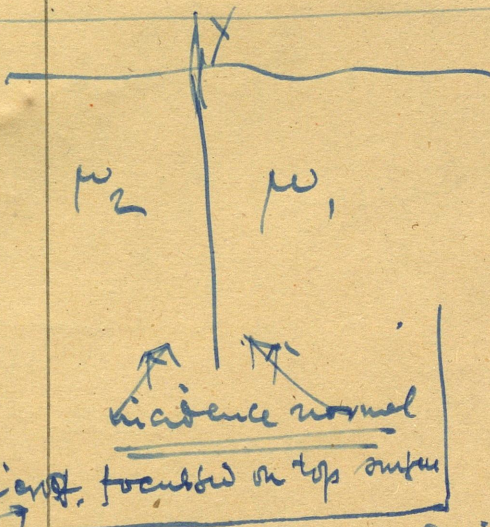 μ₂ μ₁
incidence normal
focussed on top